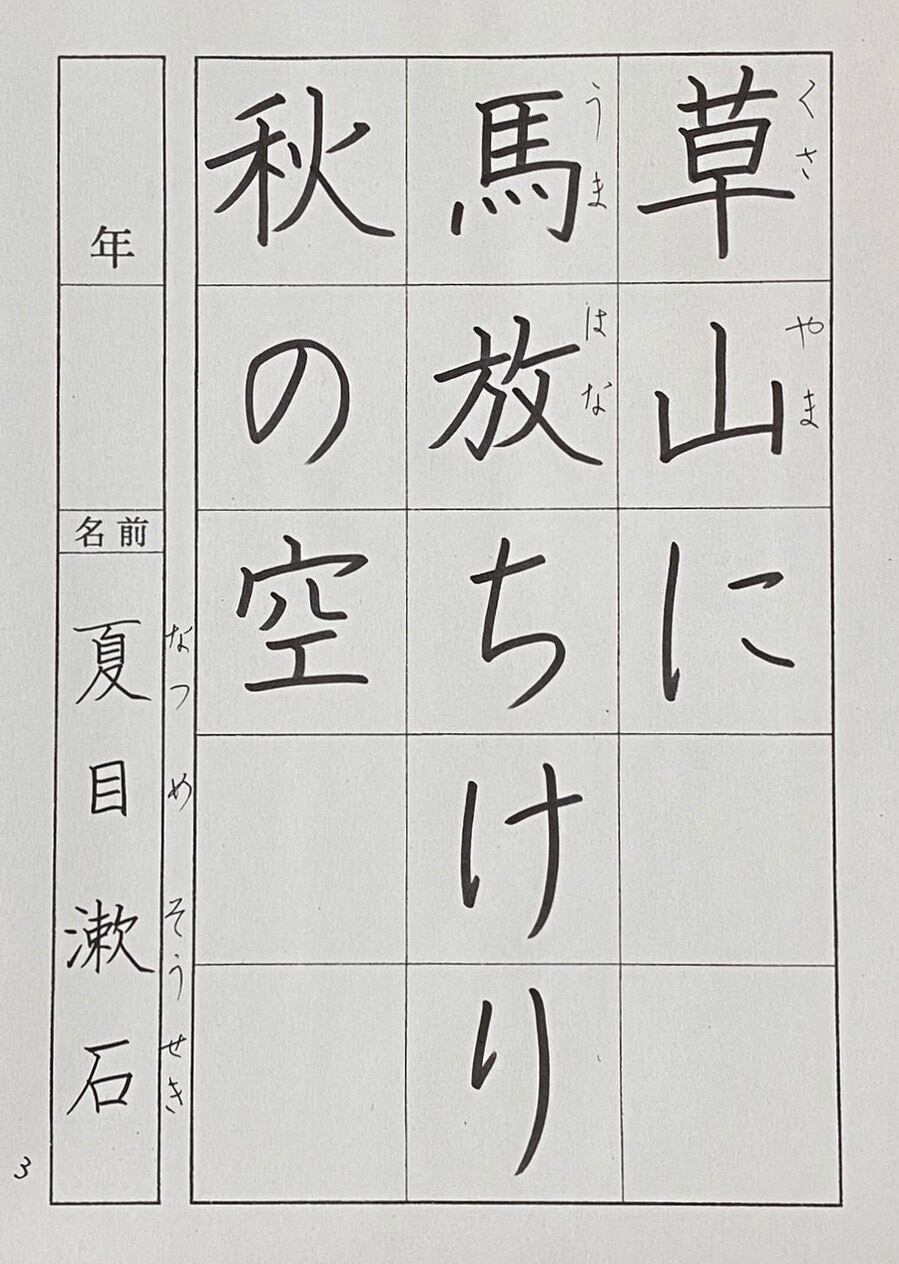 くさ やま
草山に
うま はな
馬放ちけり
秋の空
なつ め そう せき
年
名前
夏目漱石
3